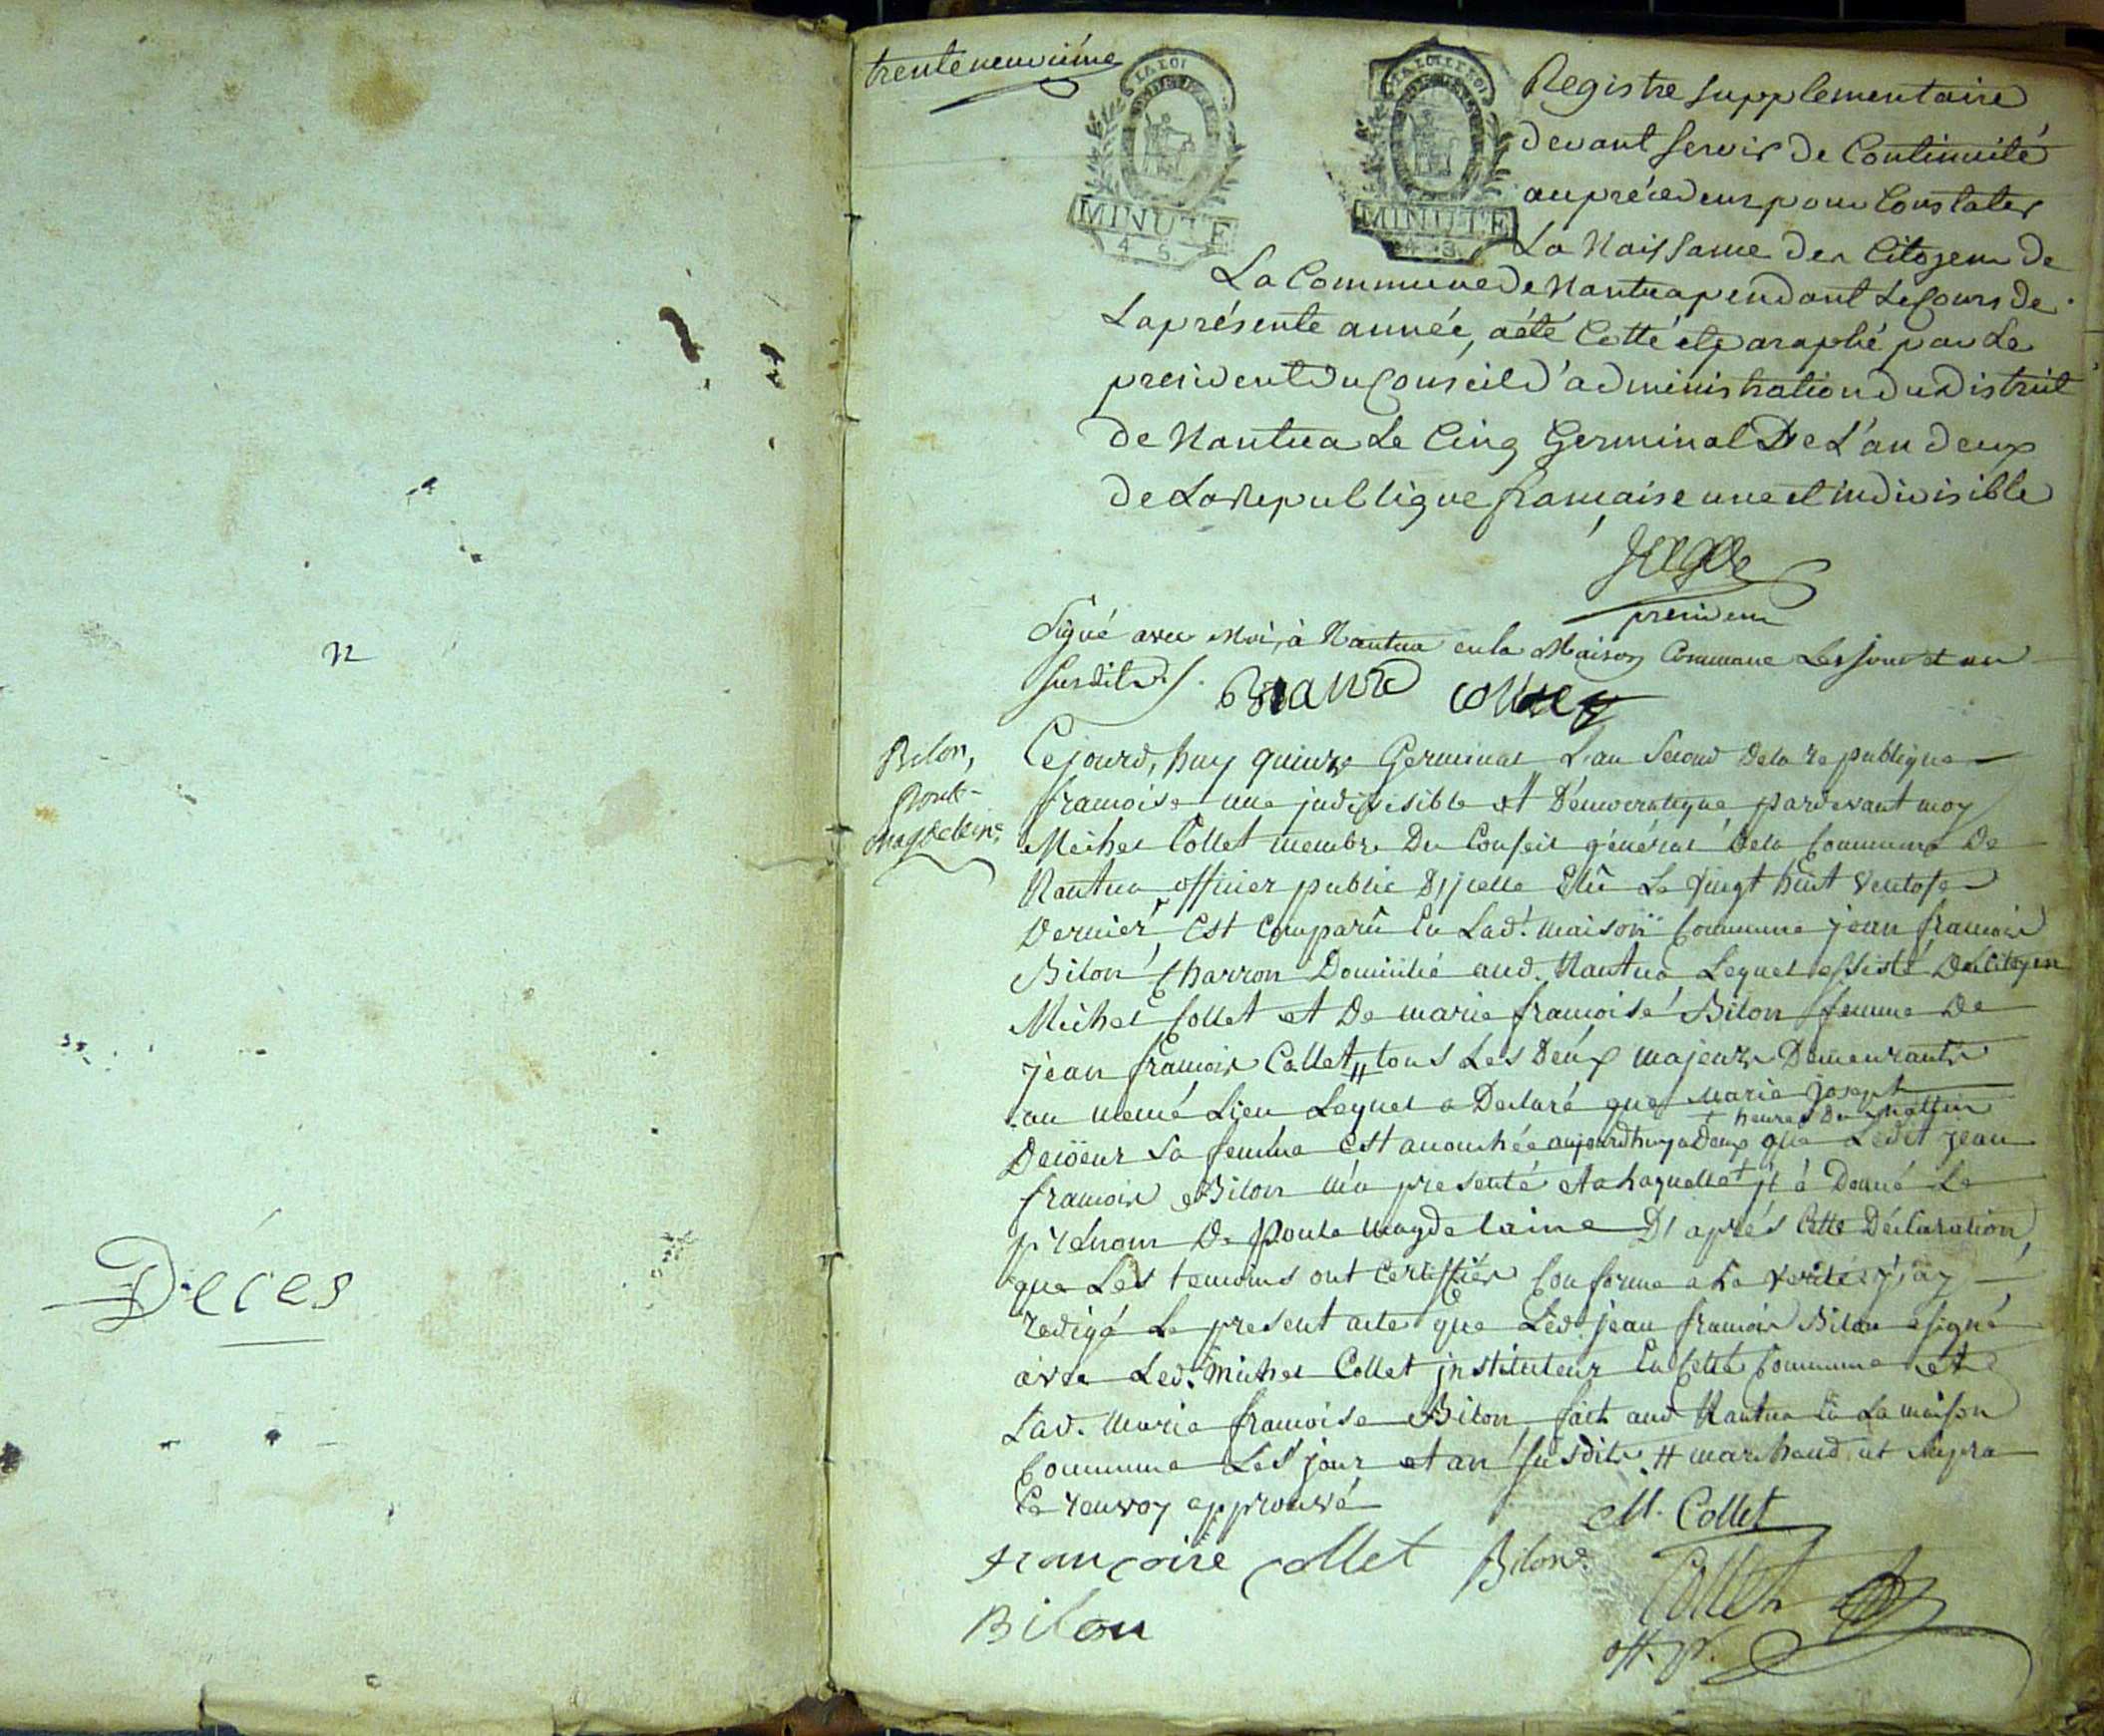 n
Décès
trente neuvième
LA LOI
MINUTE
4 S.
LA LOI LE ROI
MINUTE
4 S.
Registre supplementaire
devant servir de Continuité
au précedent pour Constater
La Naissance des Citoyens de
La Commune de Nantua pendant Le Cours de
La présente année, a été Cotté et paraphé par Le
president du Conseil d'administration du District
de Nantua Le Cinq Germinal De L'an deux
de La Republique francaise une et indivisible
president
Signé avec Moi, à Nantua en la Maison Commune Les jour et an
susdits
Bilon,
Ponte
Magdeleine
Cejourd,huy quinze Germinal L'an second De la republique
francoise une indivisible et Démocratique, pardevant moy
Michel Collet membre Du Conseil général De la Commune De
Nantua officier public D'icelle Elû Le vingt huit ventose
Dernier, Est Comparû En Lad. maison Commune jean francois
Bilon Charron Domicilié aud. Nantua Lequel assisté Du Citoyen
Michel Collet et De marie francoise Bilon femme De
jean francois Collet, # tous Les Deux majeurs Demeurants
au meme Lieu Lequel a Declaré que Marie joseph
+ heures Du Mattin
sa femme Est accouchée aujourdhuy a Deux que Ledit jean
francois Bilon m'a presenté et a Laquelle + il à Donné Le
prénom De Ponte Magdelaine D'après Cette Déclaration,
que Les temoins ont Certifiés Conforme a La verité, j'ay
redigé Le present acte que Led. jean francois Bilon a signé
avec Led. Michel Collet instituteur En Cette Commune et
Lad. Marie francoise Bilon, fait aud Nantua En La maison
Commune Les jour et an susdits # marchand ut supra
Ce renvoy approuvé
M. Collet
françoise Collet Bilon
Bilon
Collet
off. p.